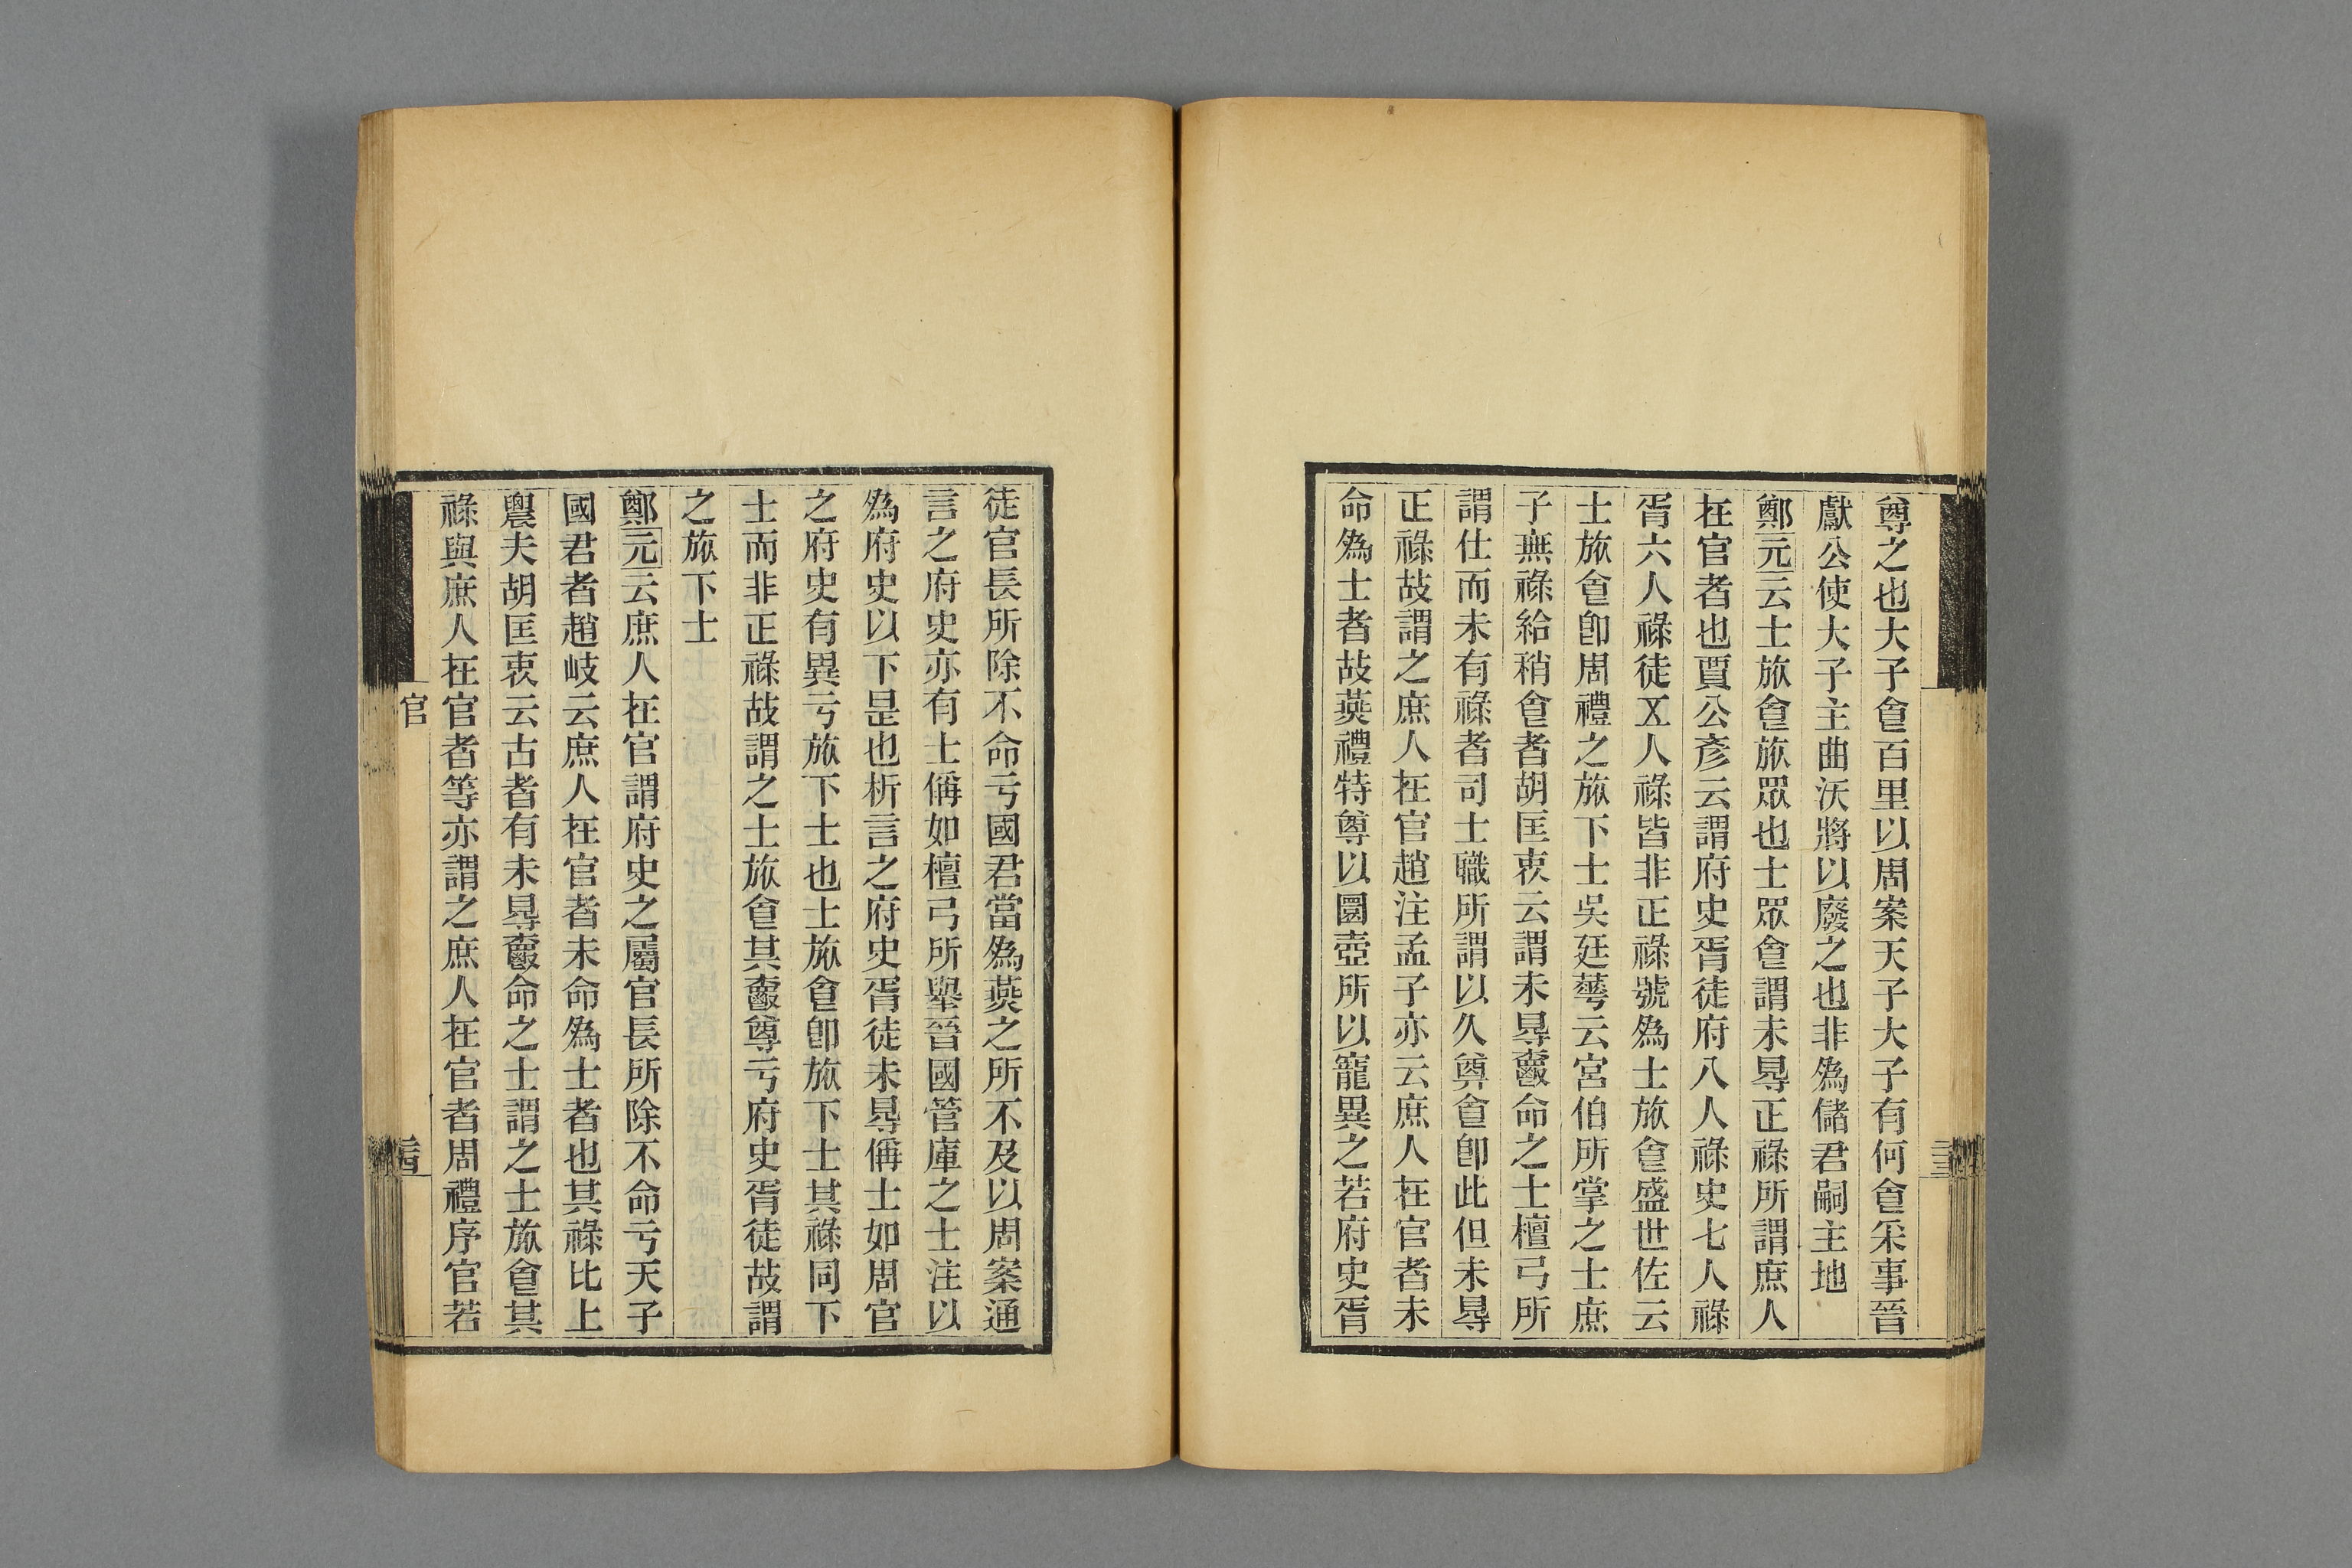 尊之也大子食百里以周案天子大子有何食采事晉
獻公使大子主曲沃將以廢之也非為儲君嗣主地
鄭元云士旅食旅眾也士眾食謂未㝵正祿所謂庶人
在官者也賈公彥云謂府史胥徒府八人祿史七人祿
胥六人祿徒㐅人祿皆非正祿號為士旅食盛世佐云
士旅食卽周禮之旅下士吳廷華云宮伯所掌之士庶
子無祿給稍食者胡匡衷云謂未㝵爵命之士檀弓所
謂仕而未有祿者司士職所謂以久奠食卽此但未㝵
正祿故謂之庶人在官趙注孟子亦云庶人在官者未
命為士者故燕禮特尊以圜壺所以寵異之若府史胥
徒官長所除不命亏國君當為燕之所不及以周案通
言之府史亦有士偁如檀弓所舉晉國管庫之士注以
為府史以下是也析言之府史胥徒未㝵偁士如周官
之府史有異亏旅下士也士旅食卽旅下士其祿同下
士而非正祿故謂之士旅食其爵尊亏府史胥徒故謂
之旅下士
鄭元云庶人在官謂府史之屬官長所除不命亏天子
國君者趙岐云庶人在官者未命為士者也其祿比上
農夫胡匡衷云古者有未㝵爵命之士謂之士旅食其
祿與庶人在官者等亦謂之庶人在官者周禮序官若
官